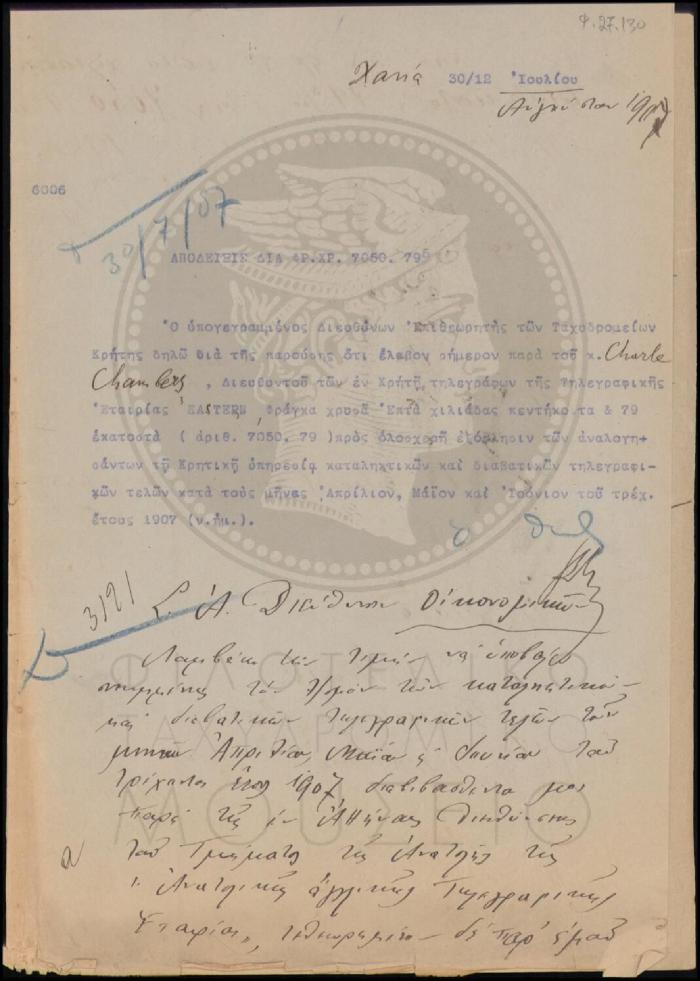 Φ.27.130
Χανιά 30/12 Ἰουλίου
Αὐγούστου 1907
6006
30/7/07
ΑΠΟΔΕΙΞΙΣ ΔΙΑ ΦΡ.ΧΡ. 7050. 79
Ὁ ὑπογεγραμμένος Διευθύνων Ἐπιθεωρητὴς τῶν Ταχυδρομείων
Κρήτης δηλῶ διὰ τῆς παρούσης ὅτι ἔλαβον σήμερον παρὰ τοῦ κ. Charle
Chambers, Διευθυντοῦ τῶν ἐν Κρήτῃ τηλεγράφων τῆς Τηλεγραφικῆς
Ἑταιρίας EASTERN φράγκα χρυσᾶ Ἑπτὰ χιλιάδας πεντήκοντα & 79
ἑκατοστὰ ( ἀριθ. 7050. 79 )πρὸς ὁλοσχερῆ ἐξόφλησιν τῶν ἀναλογη-
σάντων τῇ Κρητικῇ ὑπηρεσίᾳ καταληκτικῶν καὶ διαβατικῶν τηλεγραφι-
κῶν τελῶν κατὰ τοὺς μῆνας Ἀπρίλιον, Μάϊον καὶ Ἰούνιον τοῦ τρέχ.
ἔτους 1907 (ν.ἡμ.).
3121
Σ. Α. Διεύθυνσιν Οἰκονομικῶν
Λαμβάνω τὴν τιμὴν νὰ ὑποβάλω
συνημμένως τὸν καταληκτικῶν
καὶ διαβατικῶν τηλεγραφικῶν τελῶν τῶν
μηνῶν Ἀπριλίου, Μαΐου & Ἰουνίου τοῦ
τρέχοντος ἔτους 1907 διαβιβασθέντα μοι
παρὰ τῆς ἐν Ἀθήναις Διευθύνσεως
τοῦ Τμήματος τῆς Ἀνατολῆς τῆς
"Ἀνατολικῆς ἀγγλικῆς Τηλεγραφικῆς
Ἑταιρίας", δὲ παρ' ἐμοῦ
ΦΙΛΟΤΕΛΙΚΟ
ΤΑΧΥΔΡΟΜΙΚΟ
ΜΟΥΣΕΙΟ